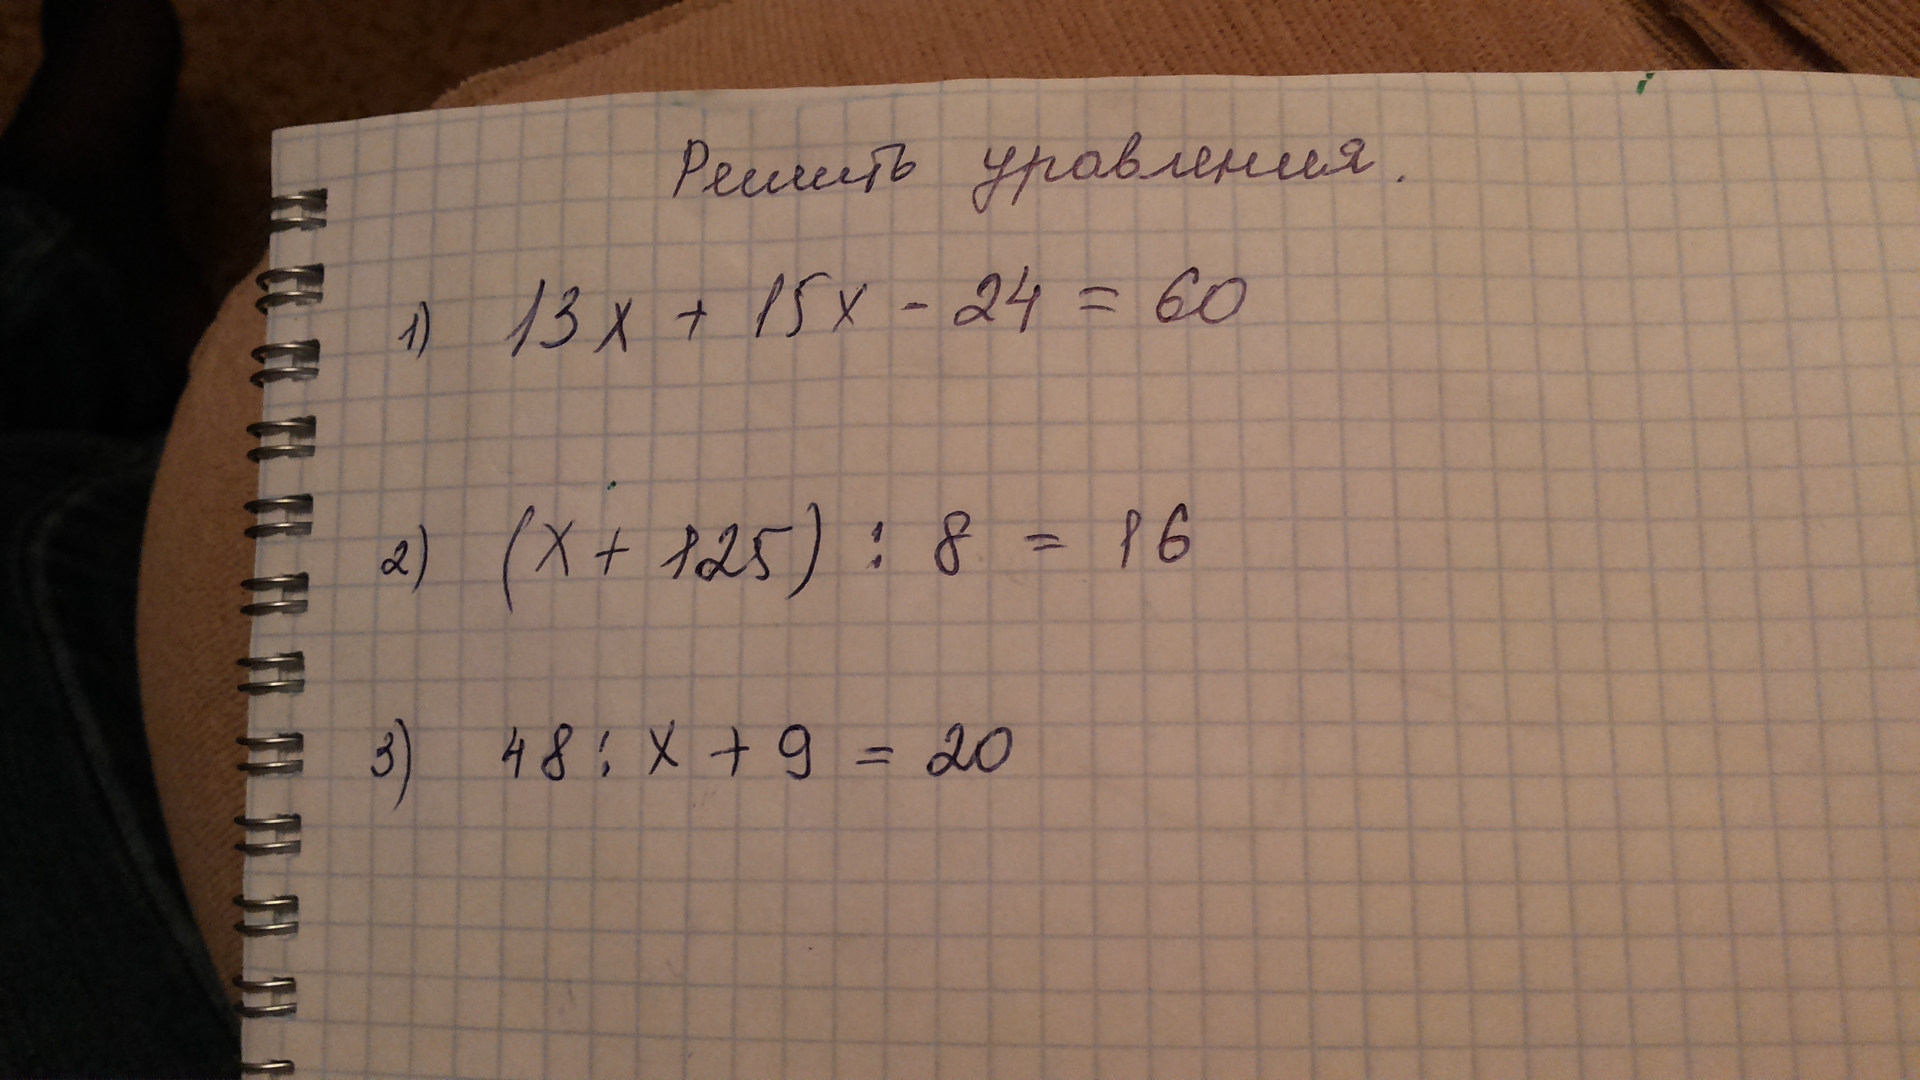 Решить уравления.
1) 13x + 15x - 24 = 60
2) (x + 125) : 8 = 16
3) 48 : x + 9 = 20